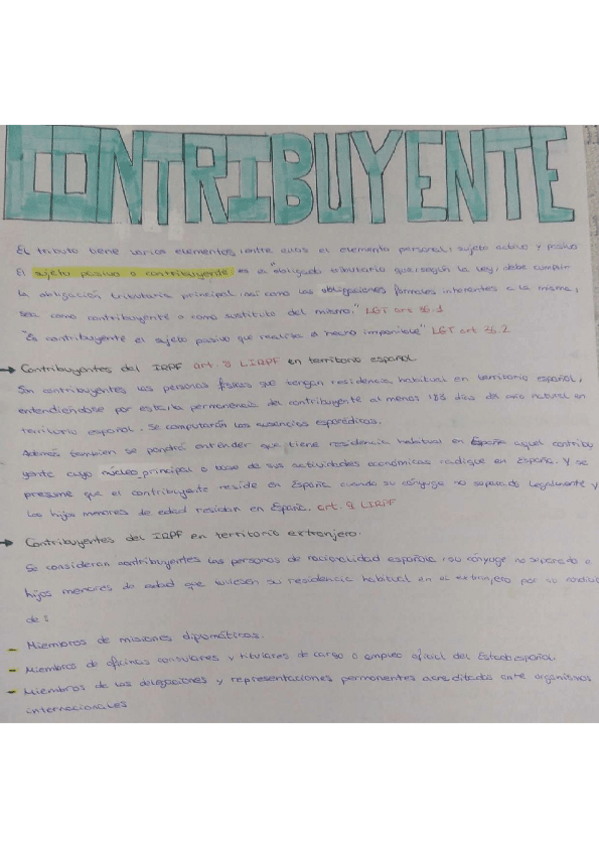 CONTRIBUYENTE
El tributo tiene varios elementos, entre ellos el elemento personal: sujeto activo y pasivo
El sujeto pasivo o contribuyente es el "obligado tributario que, según la ley, debe cumplir
la obligación tributaria principal, así como las obligaciones formales inherentes a la misma,
sea como contribuyente o como sustituto del mismo." LGT art 36.1
"Es contribuyente el sujeto pasivo que realiza el hecho imponible" LGT art 36.2
→ Contribuyentes del IRPF art. 8 LIRPF en territorio español
Son contribuyentes las personas físicas que tengan residencia habitual en territorio español,
entendiéndose por esta la permanencia del contribuyente al menos 183 días del año natural en
territorio español. Se computarán las ausencias esporádicas.
Además también se podrá entender que tiene residencia habitual en España aquel contribu
yente cuyo núcleo principal o base de sus actividades económicas radique en España. Y se
presume que el contribuyente reside en España cuando su cónyuge no separado legalmente y
los hijos menores de edad residan en España. art. 9 LIRPF
→ Contribuyentes del IRPF en territorio extranjero.
Se consideran contribuyentes las personas de nacionalidad española, su cónyuge no separado e
hijos menores de edad que tuviesen su residencia habitual en el extranjero por su condición
de:
- Miembros de misiones diplomáticas.
- Miembros de oficinas consulares y titulares de cargo o empleo oficial del Estado español
- Miembros de las delegaciones y representaciones permanentes acreditadas ante organismos
internacionales